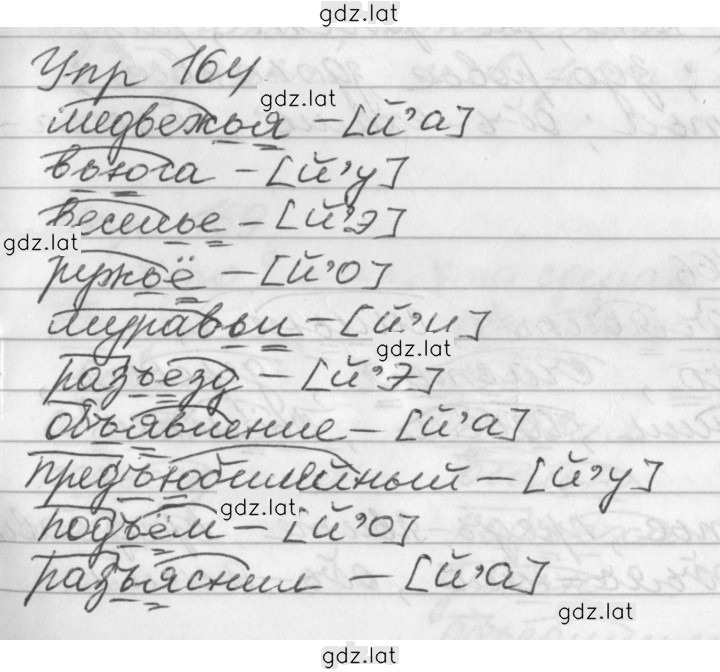 gdz.lat
Упр 164
gdz.lat
медвежья – [й'а]
вьюга – [й'у]
веселье – [й'э]
gdz.lat
ружьё – [й'о]
муравьи – [й'и]
gdz.lat
разъезд – [й'э]
объявление – [й'а]
предъюбилейный – [й'у]
gdz.lat
подъём – [й'о]
разъяснил – [й'а]
gdz.lat
gdz.lat